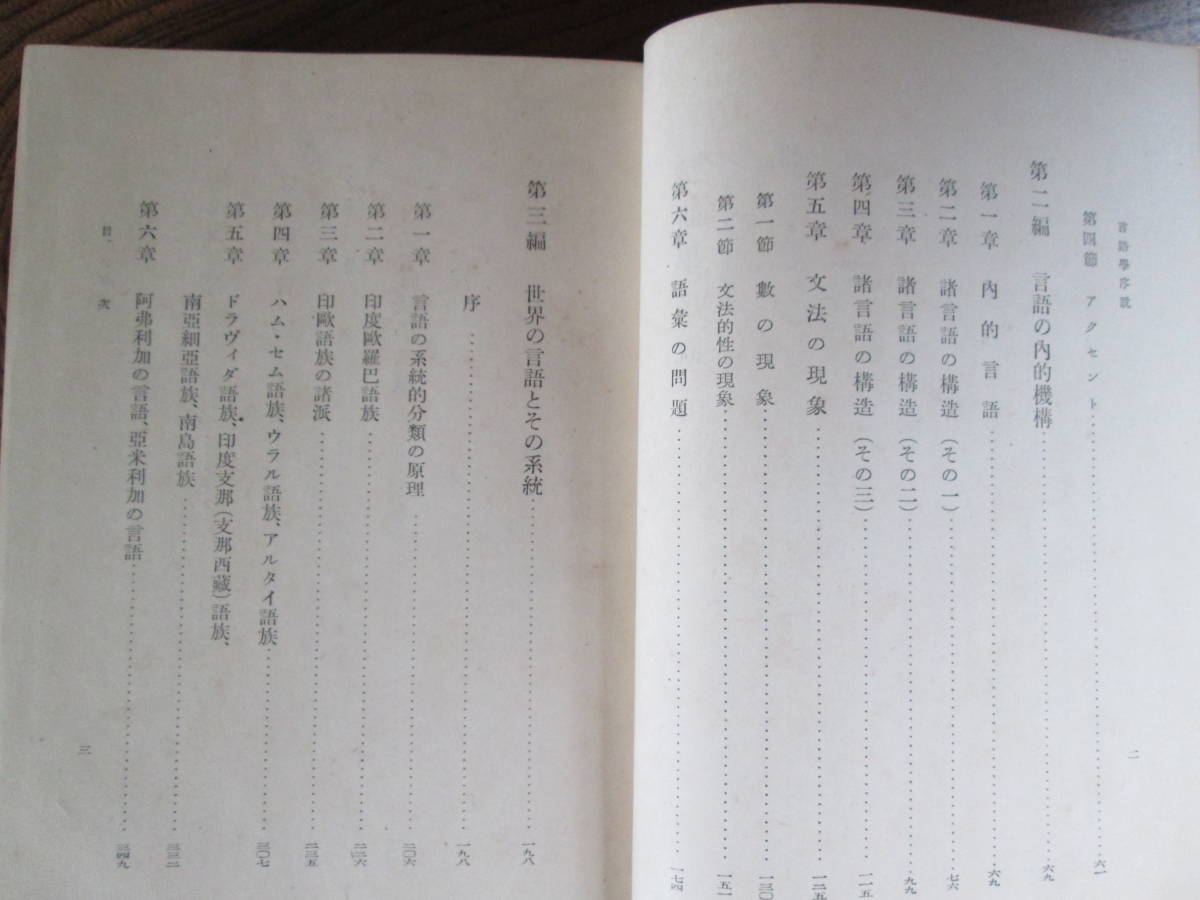 言語學序說
第四節 アクセント……六一
第二編 言語の內的機構……六九
第一章 內的言語……六九
第二章 諸言語の構造(その一)……七六
第三章 諸言語の構造(その二)……九九
第四章 諸言語の構造(その三)……一一五
第五章 文法の現象……一二五
第一節 數の現象……一三〇
第二節 文法的性の現象……一五一
第六章 語彙の問題……一七四
二
第三編 世界の言語とその系統……一九八
序……一九八
第一章 言語の系統的分類の原理……二〇六
第二章 印度歐羅巴語族……二二六
第三章 印歐語族の諸派……二三五
第四章 ハム・セム語族、ウラル語族、アルタイ語族……三〇七
第五章 ドラヴィダ語族、印度支那(支那西藏)語族、
南亞細亞語族、南島語族……三三二
第六章 阿弗利加の言語、亞米利加の言語……三四九
目次
三